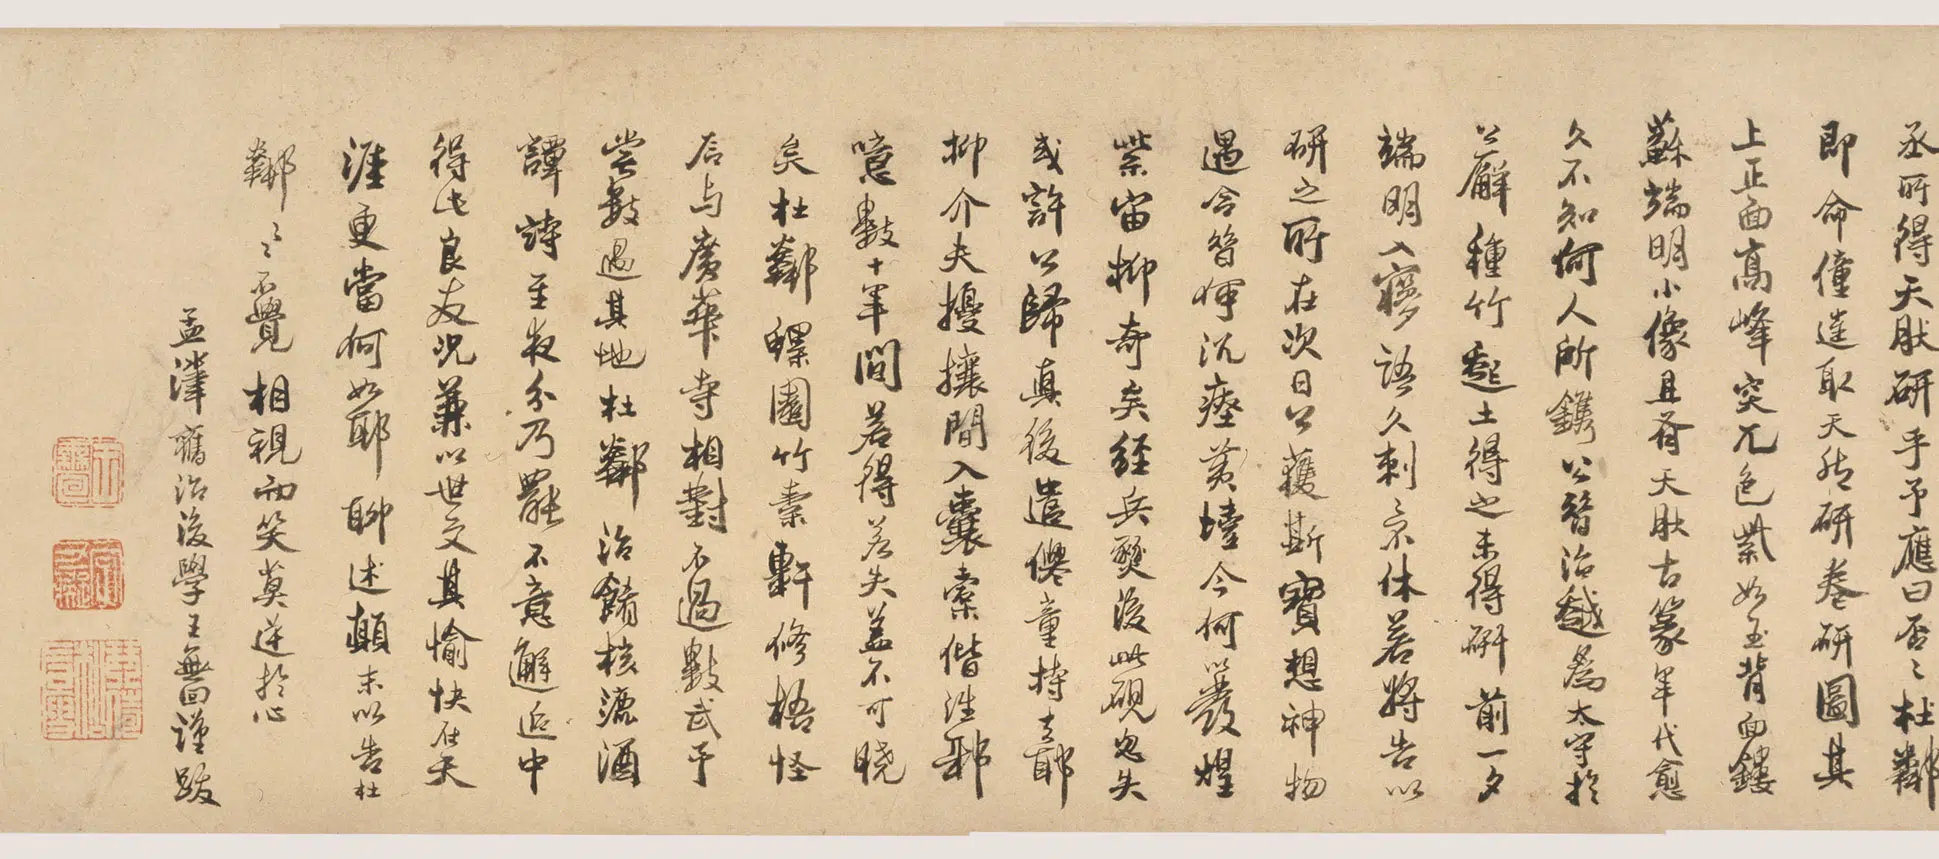 丞所得天肰研乎予應曰否〻杜鄰
即命僮送取天然研卷研圖其
上正面高峰突兀色紫如玉背面鏤
蘇端明小像且有天肰古篆年代愈
久不知何人所鐫公嘗治越為太守於
公廨種竹起土得之未得研前一夕
端明入寢語久刺京休若將告以
研之所在次日公獲斯寶想神物
遇合昝何沉瘞黃壚今何以發燿
紫宙抑奇矣經兵燹後此硯忽失
或許公歸真後遣僊童持去耶
抑介夫擾攘間入囊橐偕往耶
噫數十年間若得若失蓋不可曉
矣杜鄰蠌園竹素軒修梧怪
石與廣華寺相對不過數武予
嘗數過其地杜鄰治餚核漉酒
譚詩至夜分乃罷不意邂逅中
得此良友況兼以世交其愉快在天
涯更當何如耶聊述顛末以告杜
鄰〻〻不覺相視而笑莫逆於心
孟津舊治後學王無回謹跋